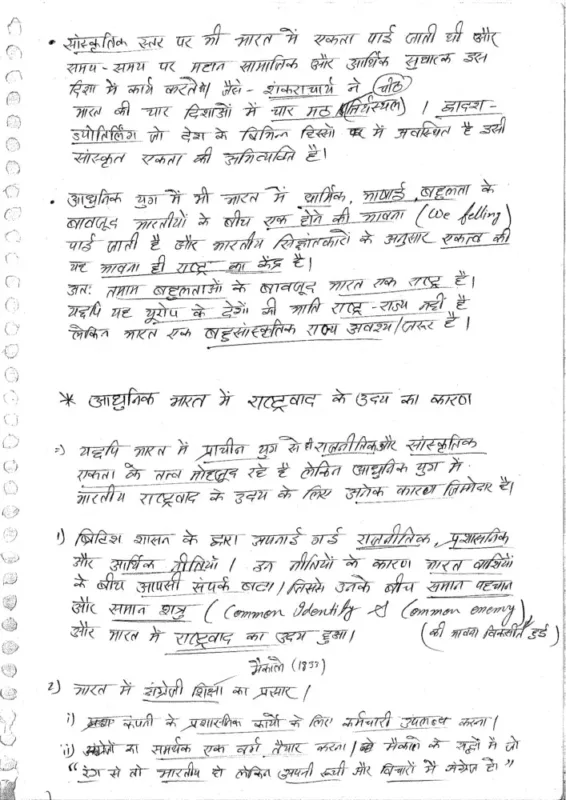 • सांस्कृतिक स्तर पर भी भारत में एकता पाई जाती थी और
समय-समय पर महान सामाजिक और आर्थिक सुधारक इस
दिशा में कार्य करते थे। जैसे - शंकराचार्य ने
भारत की चार दिशाओं में चार मठ । द्वादश-
ज्योतिर्लिंग जो देश के विभिन्न हिस्सो में अवस्थित है उसी
सांस्कृत एकता की अभिव्यक्ति है।
• आधुनिक युग में भी भारत में धार्मिक, भाषाई, बहुलता के
बावजूद भारतीयों के बीच एक होने की भावना (We felling)
पाई जाती है और भारतीय सिद्धांतकारों के अनुसार एकत्व की
यह भावना ही राष्ट्र का केंद्र है।
अतः तमाम बहुलताओं के बावजूद भारत एक राष्ट्र है।
यद्यपि यह यूरोप के देशों की भाति राष्ट्र-राज्य नहीं है
लेकिन भारत एक बहुसांस्कृतिक राज्य अवश्य/जरूर है।
* आधुनिक भारत में राष्ट्रवाद के उदय का कारण
=) यद्यपि भारत में प्राचीन युग से ही राजनीतिक और सांस्कृतिक
एकता के तत्व मौजूद रहे है लेकिन आधुनिक युग में
भारतीय राष्ट्रवाद के उदय के लिए अनेक कारण जिम्मेदार है।
1) ब्रिटिश शासन के द्वारा अपनाई गई राजनीतिक, प्रशासनिक
और आर्थिक नीतियाँ। इन नीतियों के कारण भारत वासियों
के बीच आपसी संपर्क बढ़ा। जिससे उनके बीच समान पहचान
और समान शत्रु (Common Identity & Common enemy)
और भारत में राष्ट्रवाद का उदय हुआ। (की भावना विकसित हुई)
मैकाले
2) भारत में अंग्रेजी शिक्षा का प्रचार।
i) कंपनी के प्रशासनिक कार्यो के लिए कर्मचारी उपलब्ध करना।
ii) का समर्थक एक वर्ग तैयार करना। मैकाले के शब्दों में जो
"रंग से तो भारतीय हो लेकिन अपनी रूची और विचारों में अंग्रेज हो।"